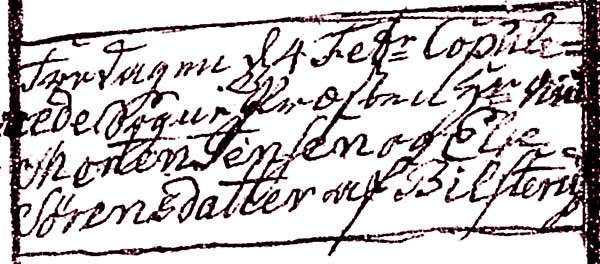 Tørsdagen d 4 Febr Copule=
rede Sogne Præsten Hr
Morten Jensen og Else
Sørensdatter af Bilsterup